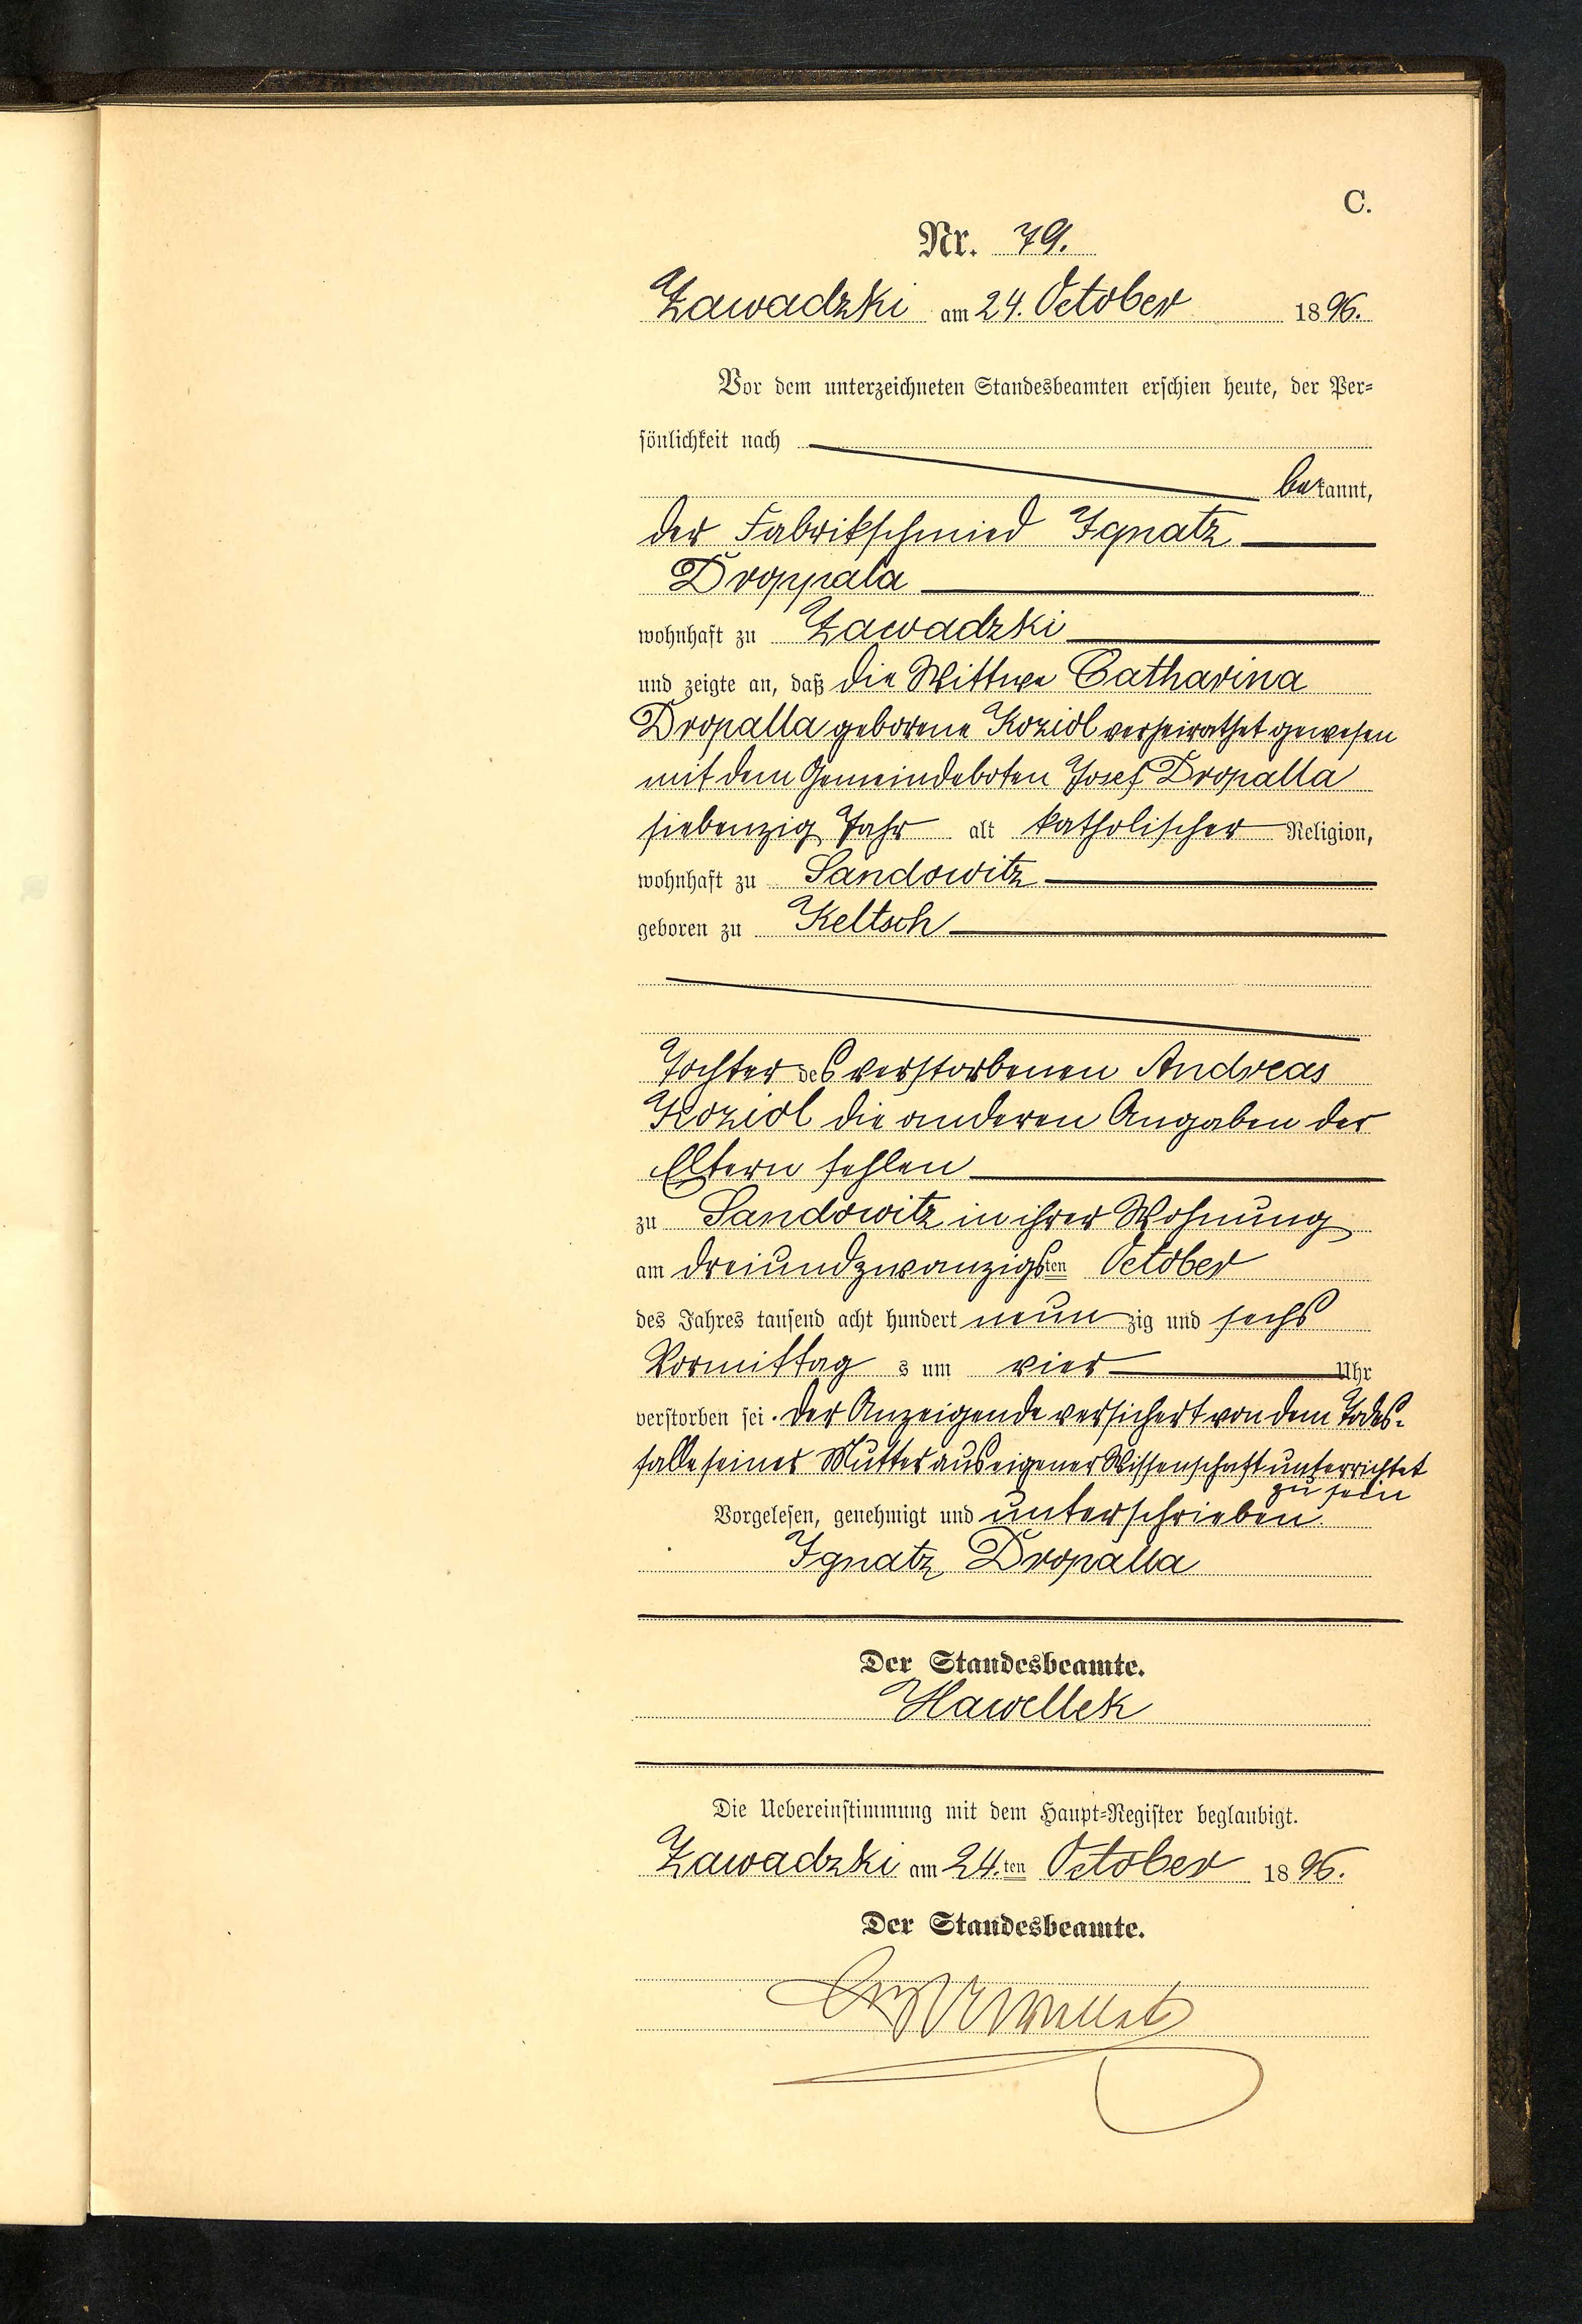 C.
Nr. 79.
Zawadzki am 24. October 1896.
Vor dem unterzeichneten Standesbeamten erschien heute, der Per-
sönlichkeit nach
bekannt,
der Fabrikschmied Ignatz
Droppala
wohnhaft zu Zawadzki
und zeigte an, daß die Wittwe Catharina
Dropalla geborene Koziol verheirathet gewesen
mit dem Gemeindeboten Josef Dropalla
siebenzig Jahr alt katholischer Religion,
wohnhaft zu Sandowitz
geboren zu Keltsch
Tochter des verstorbenen Andreas
Koziol die anderen Angaben der
Eltern fehlen
zu Sandowitz in ihrer Wohnung
am dreiundzwanzigsten October
des Jahres tausend acht hundert neunzig und sechs
Vormittags um vier Uhr
verstorben sei. Der Anzeigende versichert von dem Todes-
falle seiner Mutter aus eigener Wissenschaft unterrichtet
zu sein
Vorgelesen, genehmigt und unterschrieben.
Ignatz Dropalla
Der Standesbeamte.
Hawellek
Die Uebereinstimmung mit dem Haupt-Register beglaubigt.
Zawadzki am 24.ten October 1896.
Der Standesbeamte.